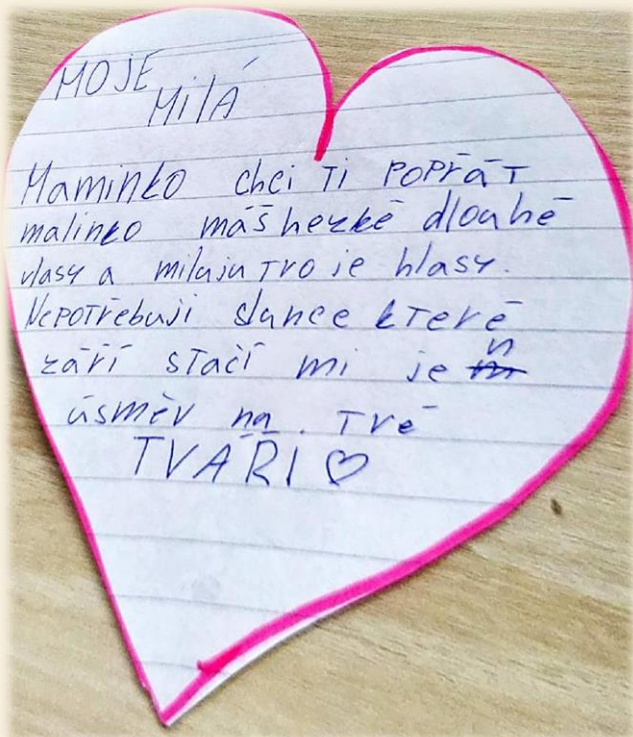 MOJE
MiLÁ
Maminko chci Ti POPŘÁT
malinko máš hezké dlouhé
vlasy a miluju TVOje hlasy.
NePOTřebuji slunce kTeré
září sTačí mi jen
úsměv na. Tvé
TVÁŘI ♡